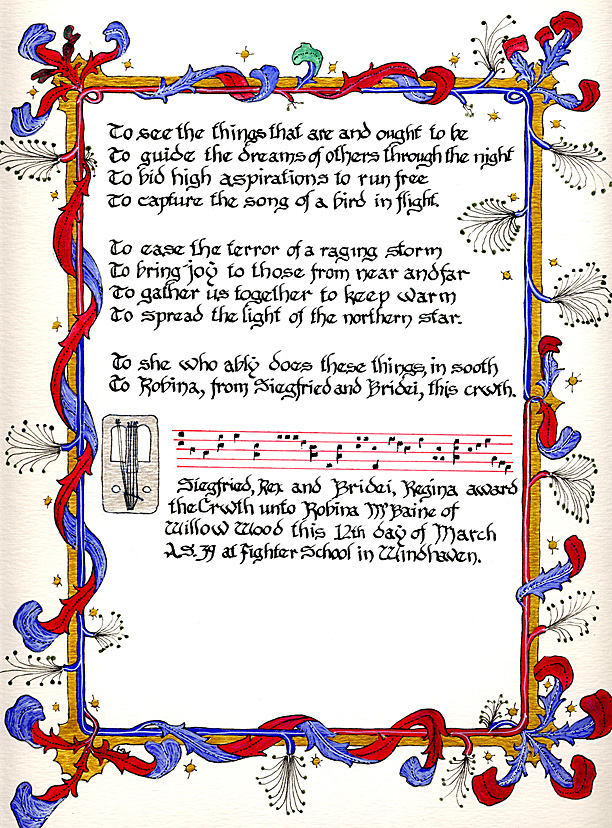 To see the things that are and ought to be
To guide the dreams of others through the night
To bid high aspirations to run free
To capture the song of a bird in flight.
To ease the terror of a raging storm
To bring joy to those from near and far
To gather us together to keep warm
To spread the light of the northern star.
To she who ably does these things, in sooth
To Robina, from Siegfried and Bridei, this crwth.
Siegfried, Rex and Bridei, Regina award
the Crwth unto Robina McBaine of
Willow Wood this 12th day of March
A.S. 39 at Fighter School in Windhaven.